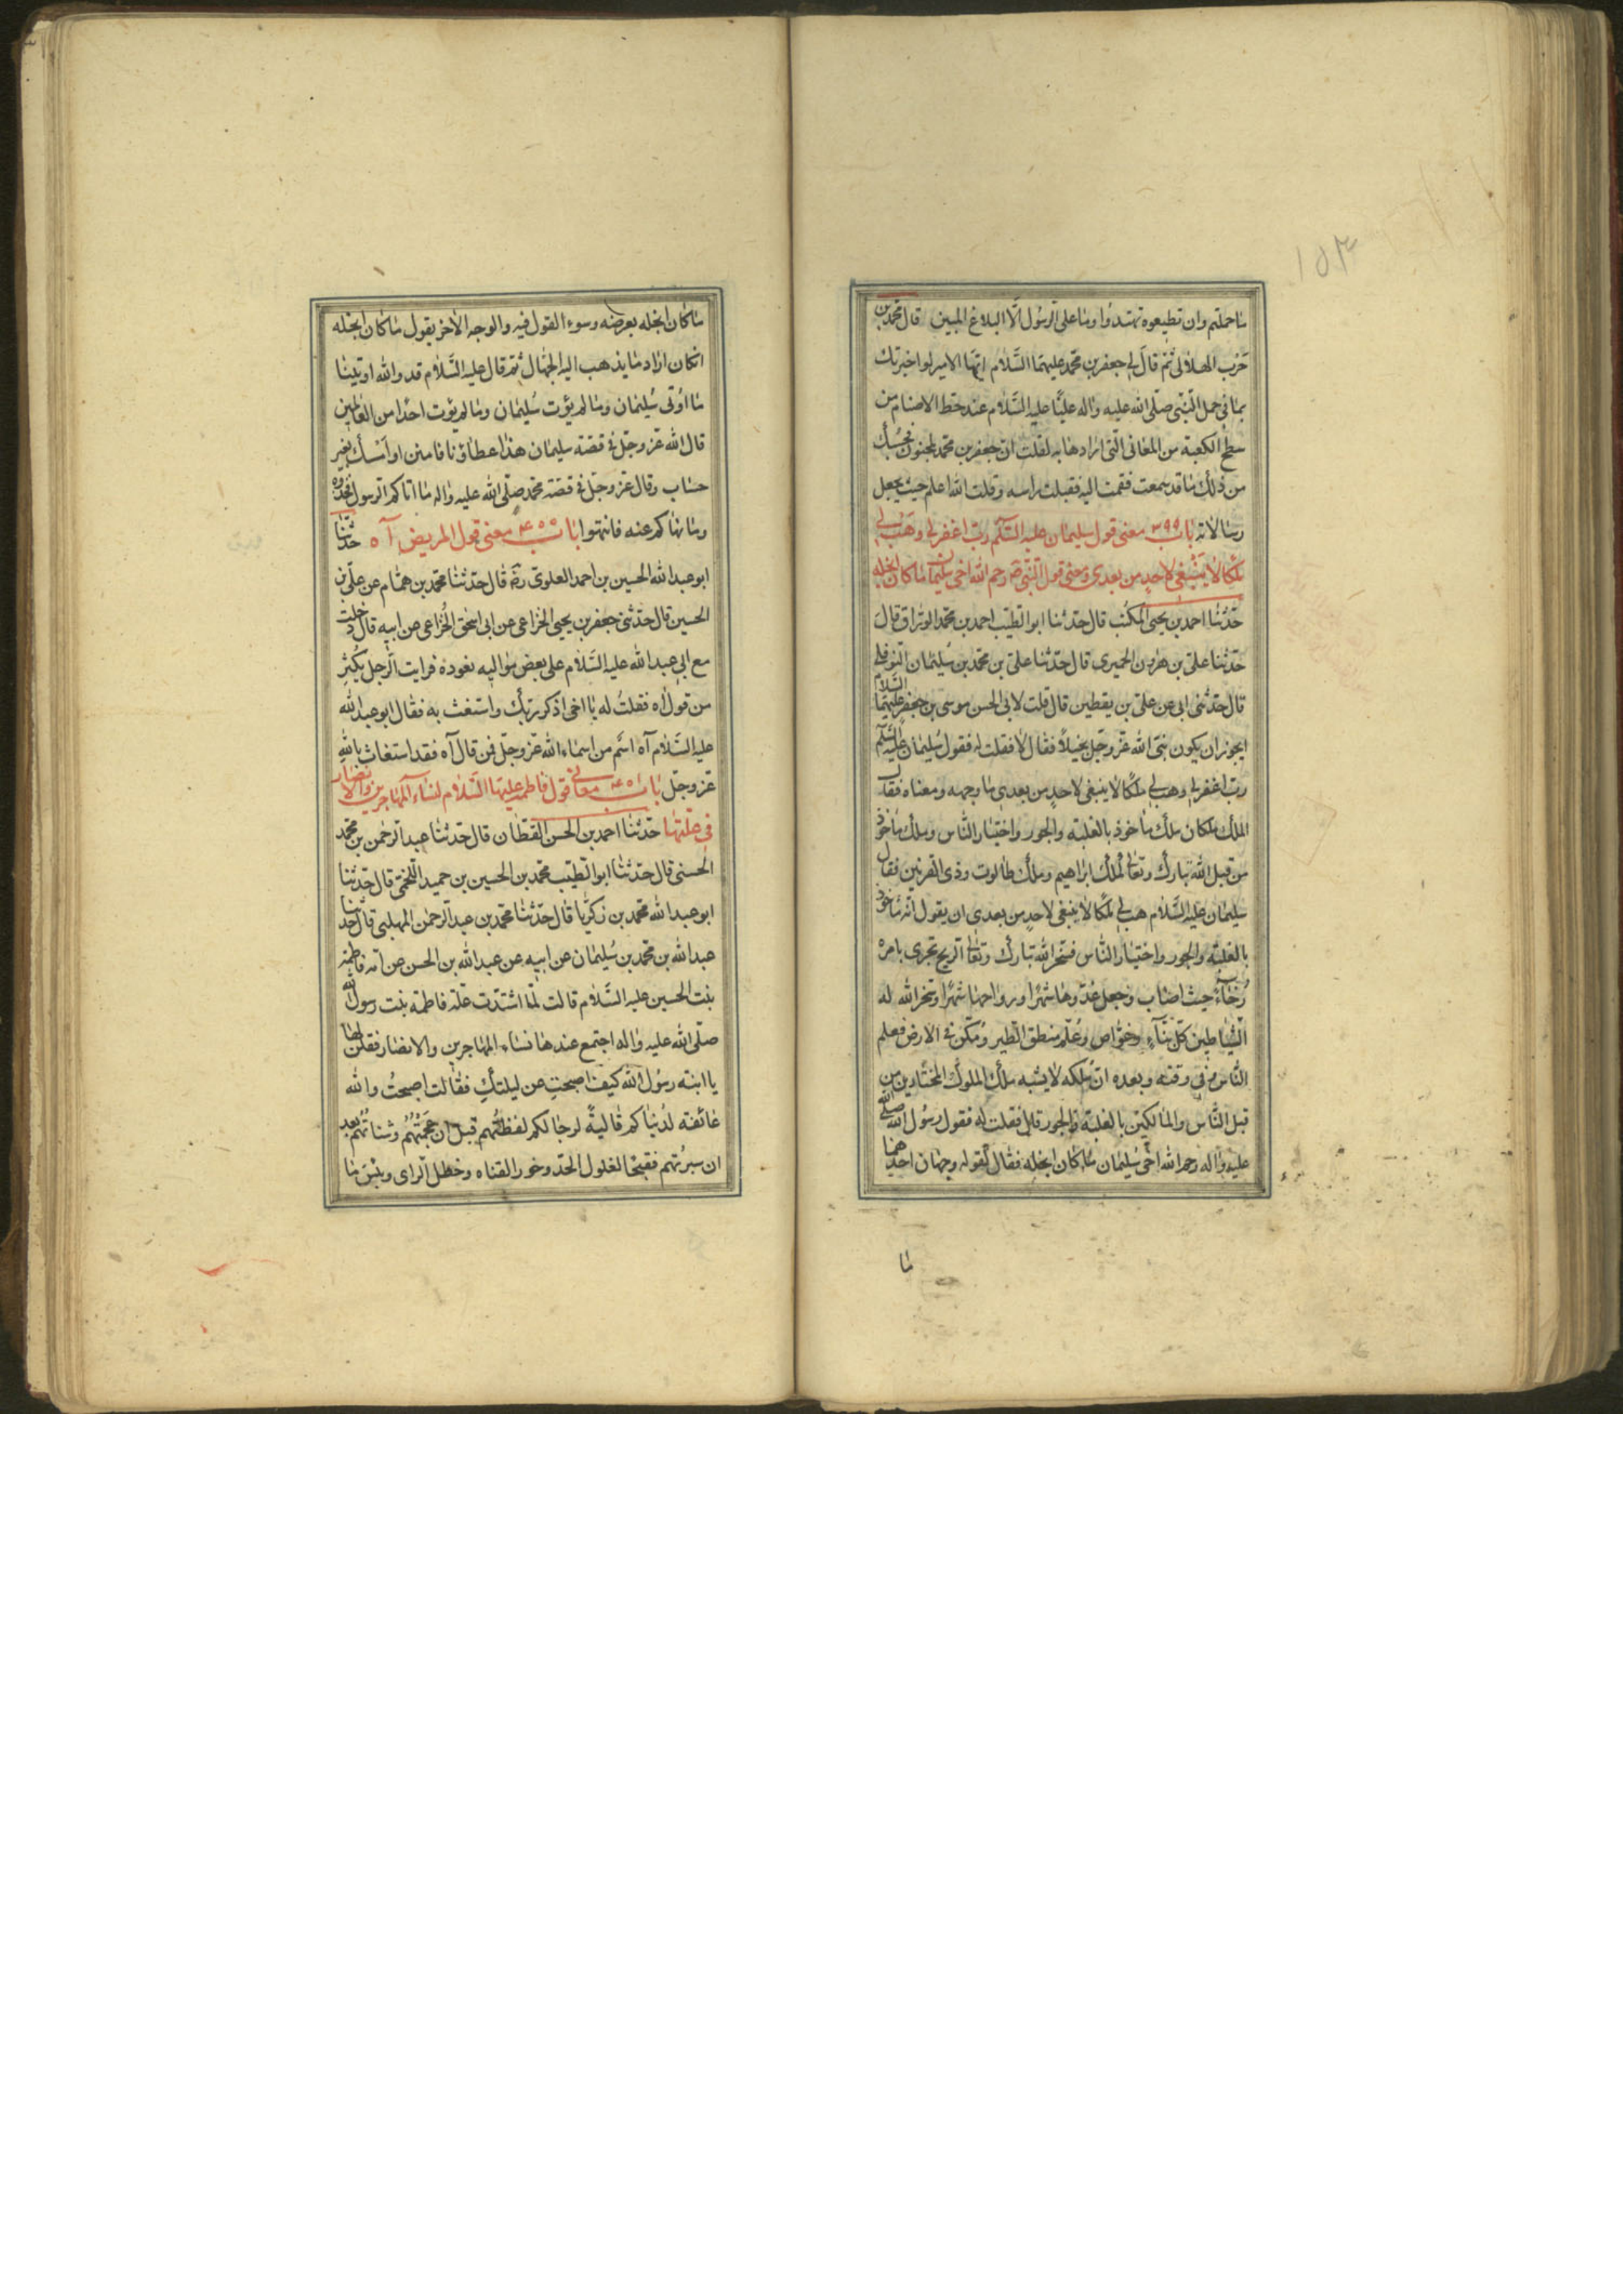 ١٥٣
ما حملتم وان تطيعوه تهتدوا وما على الرسول الا البلاغ المبين قال محمد بن
حرب الهلالى ثم قال لى جعفر بن محمد عليهما السلام ايها الامير لو اخبرتك
بما فى حمل النبى صلى الله عليه واله عليا عليه السلام عند حط الاصنام من
سطح الكعبة من المعانى التى ارادها به لقلت ان جعفر بن محمد لمجنون فحسبك
من ذلك ما قد سمعت فقمت اليه فقبلت راسه وقلت الله اعلم حيث يجعل
رسالاته باب ٣٩٩ معنى قول سليمان عليه السلم رب اغفر لى وهب لى
ملكا لا ينبغى لاحد من بعدى ومعنى قول النبى صه رحم الله اخى سليمان ما كان ابخله
حدثنا احمد بن يحيى المكتب قال حدثنا ابو الطيب احمد بن محمد الوراق قال
حدثنا على بن هارون الحميرى قال حدثنا على بن محمد بن سليمان النوفلى
قال حدثنى ابى عن على بن يقطين قال قلت لابى الحسن موسى بن جعفر عليهما السلام
ايجوز ان يكون نبى الله عز وجل بخيلا فقال لا فقلت له فقول سليمان عليه السلم
رب اغفر لى وهب لى ملكا لا ينبغى لاحد من بعدى ما وجهه ومعناه فقال
الملك ملكان ملك ماخوذ بالغلبة والجور واختيار الناس وملك ماخوذ
من قبل الله تبارك وتعالى كملك ابراهيم وملك طالوت وذى القرنين فقال
سليمان عليه السلام هب لى ملكا لا ينبغى لاحد من بعدى ان يقول انه ماخوذ
بالغلبة والجور واختيار الناس فسخر الله تبارك وتعالى الريح تجرى بامره
رخاء حيث اصاب وجعل غدوها شهرا ورواحها شهرا وسخر الله له
الشياطين كل بناء وغواص وعلم منطق الطير ومكن فى الارض فعلم
الناس فى وقته وبعده ان ملكه لا يشبه ملك الملوك المختارين من
قبل الناس والمالكين بالغلبة والجور قال فقلت له فقول رسول الله صلى الله
عليه واله رحم الله اخى سليمان ما كان ابخله فقال لقوله وجهان احدهما
ما
ما كان ابخله بعرضه وسوء القول فيه والوجه الاخر يقول ما كان ابخله
ان كان اراد ما يذهب اليه الجهال ثم قال عليه السلام قد والله اوتينا
ما اوتى سليمان وما لم يؤت سليمان وما لم يؤت احدا من العالمين
قال الله عز وجل فى قصة سليمان هذا عطاؤنا فامنن او امسك بغير
حساب وقال عز وجل فى قصة محمد صلى الله عليه واله ما اتاكم الرسول فخذوه
وما نهاكم عنه فانتهوا باب ٤٠٠ معنى قول المريض آه حدثنا
ابو عبد الله الحسين بن احمد العلوى رضه قال حدثنا محمد بن همام عن على بن
الحسين قال حدثنى جعفر بن يحيى الخزاعى عن ابى اسحق الخزاعى عن ابيه قال دخلت
مع ابى عبد الله عليه السلام على بعض مواليه نعوده فرايت الرجل يكثر
من قول اه فقلت له يا اخى اذكر ربك واستغث به فقال ابو عبد الله
عليه السلام آه اسم من اسماء الله عز وجل فمن قال آه فقد استغاث بالله
عز وجل باب ٤٠١ معانى قول فاطمه عليها السلام لنساء المهاجرين والانصار
فى علتها حدثنا احمد بن الحسن القطان قال حدثنا عبد الرحمن بن محمد
الحسنى قال حدثنا ابو الطيب محمد بن الحسين بن حميد اللخمى قال حدثنا
ابو عبد الله محمد بن زكريا قال حدثنا محمد بن عبد الرحمن المهلبى قال حدثنا
عبد الله بن محمد بن سليمان عن ابيه عن عبد الله بن الحسن عن امه فاطمة
بنت الحسين عليه السلام قالت لما اشتدت علة فاطمة بنت رسول الله
صلى الله عليه واله اجتمع عندها نساء المهاجرين والانصار فقلن لها
يا ابنة رسول الله كيف اصبحت عن ليلتك فقالت اصبحت والله
عائفة لدنياكم قالية لرجالكم لفظتهم قبل ان عجمتهم وشناتهم بعد
ان سبرتهم فقبحا لفلول الحد وخور القناه وخطل الراى وبئس ما